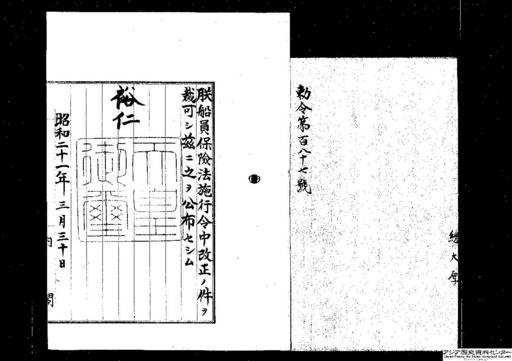 勅令第百八十七號
總大厚
朕船員保險法施行令中改正ノ件ヲ
裁可シ茲ニ之ヲ公布セシム
裕仁
天皇
御璽
昭和二十一年三月三十日
内閣
アジア歴史資料センター